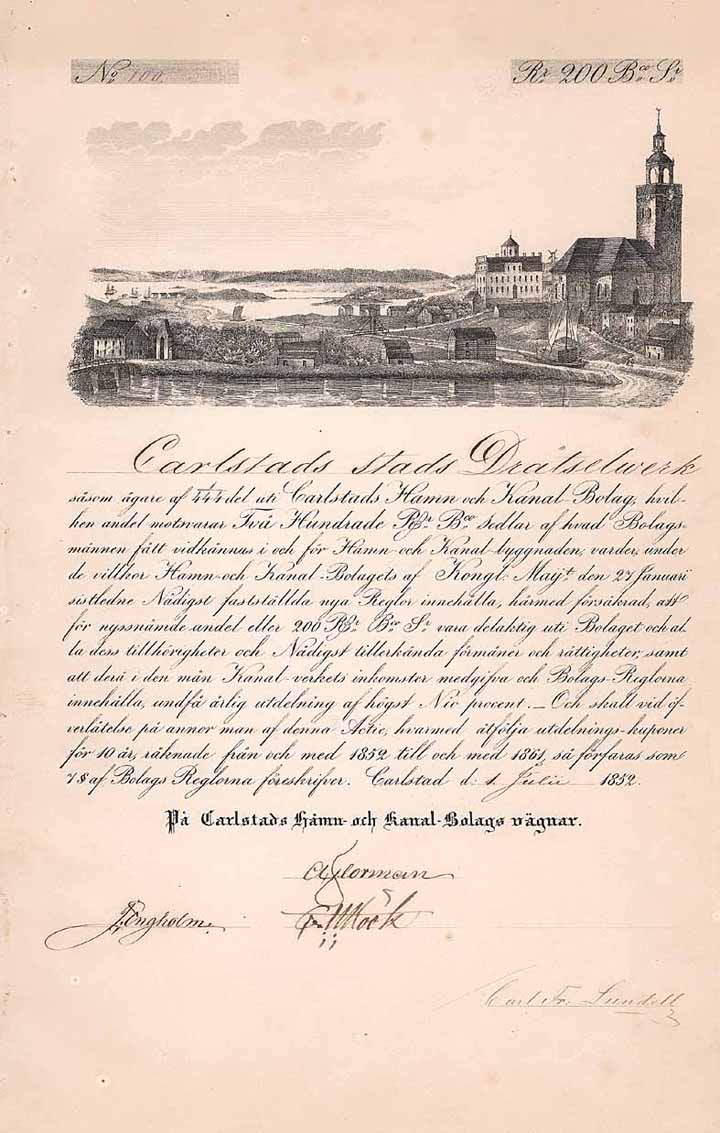 No 100
Rr 200 Bco Sr
Carlstads stads Drätselwerk
såsom ägare af 1/444 del uti Carlstads Hamn och Kanal-Bolag, hvil-
ken andel motsvarar Två Hundrade Rdr Bco Sedlar af hvad Bolags-
männen fått vidkännas i och för Hamn- och Kanal-byggnaden, varder, under
de villkor Hamn- och Kanal-Bolagets af Kongl. Majt. den 27 Januari
sistledne Nådigst fastställda nya Reglor innehålla, härmed försäkrad, att
för nyssnämde andel eller 200 Rdr Bco Sr vara delaktig uti Bolaget och al-
la dess tillhörigheter och Nådigst tillerkända förmåner och rättigheter, samt
att derå i den mån Kanal-verkets inkomster medgifva och Bolags-Reglorna
innehålla, undfå årlig utdelning af högst Nio procent. _ Och skall vid öf-
verlåtelse på annor man af denna Actie, hvarmed åtfölja utdelnings-kuponer
för 10 år, räknade från och med 1852 till och med 1861, så förfaras som
7 § af Bolags Reglorna föreskrifver. Carlstad d. 1 Julii 1852.
På Carlstads Hamn- och Kanal-Bolags vägnar.
Engholm
Carl Fr. Lundell